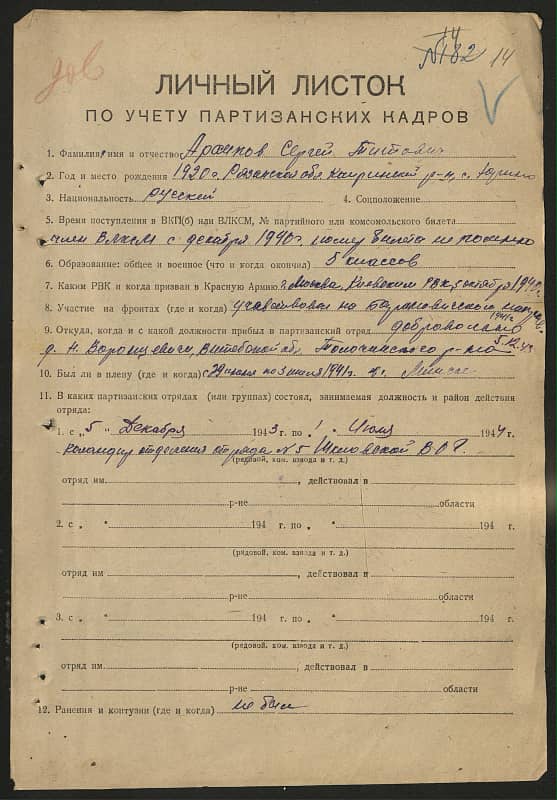 14
№182 14
дов
ЛИЧНЫЙ ЛИСТОК
ПО УЧЕТУ ПАРТИЗАНСКИХ КАДРОВ
1. Фамилия, имя и отчество Архипов Сергей Титович
2. Год и место рождения 1920г. Рязанской обл. р-н, с.
3. Национальность русский 4. Соцположение
5. Время поступления в ВКП(б) или ВЛКСМ, № партийного или комсомольского билета
член ВЛКСМ с декабря 1940г. номер билета не
6. Образование: общее и военное (что и когда окончил) 5 классов
7. Каким РВК и когда призван в Красную Армию г. Москва, Киевским РВК, 5 октября 1940г.
8. Участие на фронтах (где и когда) участвовал на Барановичском 1941г.
9. Откуда, когда и с какой должности прибыл в партизанский отряд добровольно
д. Н. Воронцевичи, Витебской обл. Толочинского р-на 5.12.43
10. Был ли в плену (где и когда) с 29 июня по 3 июля 1941г. г. Минск
11. В каких партизанских отрядах (или группах) состоял, занимаемая должность и район действия
отряда:
1. с „5" Декабря 1943 г. по 1 Июля 1944 г.
командир отделения отряда №5 Шкловской ВОГ.
(рядовой, ком. взвода и т. д.)
отряд им , действовал в
р-не области
2. с „ " 194 г. по „ " 194 г.
(рядовой, ком. взвода и т. д.)
отряд им , действовал в
р-не области
3. с „ " 194 г. по „ " 194 г.
(рядовой, ком. взвода и т. д.)
отряд им , действовал в
р-не области
12. Ранения и контузии (где и когда) не был